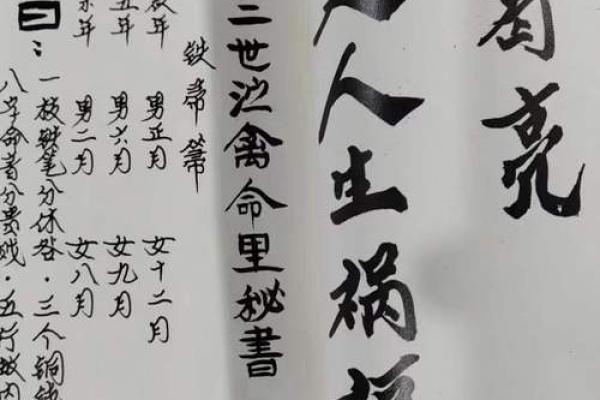 亮
人生祸
世禽命里秘書
铁帚箒
年 男正月 女十二月
年 男六月 女九月
年 男二月 女八月
曰：一枝铁笔分休咎．三个铜
八字命者分贵贱．五行数内